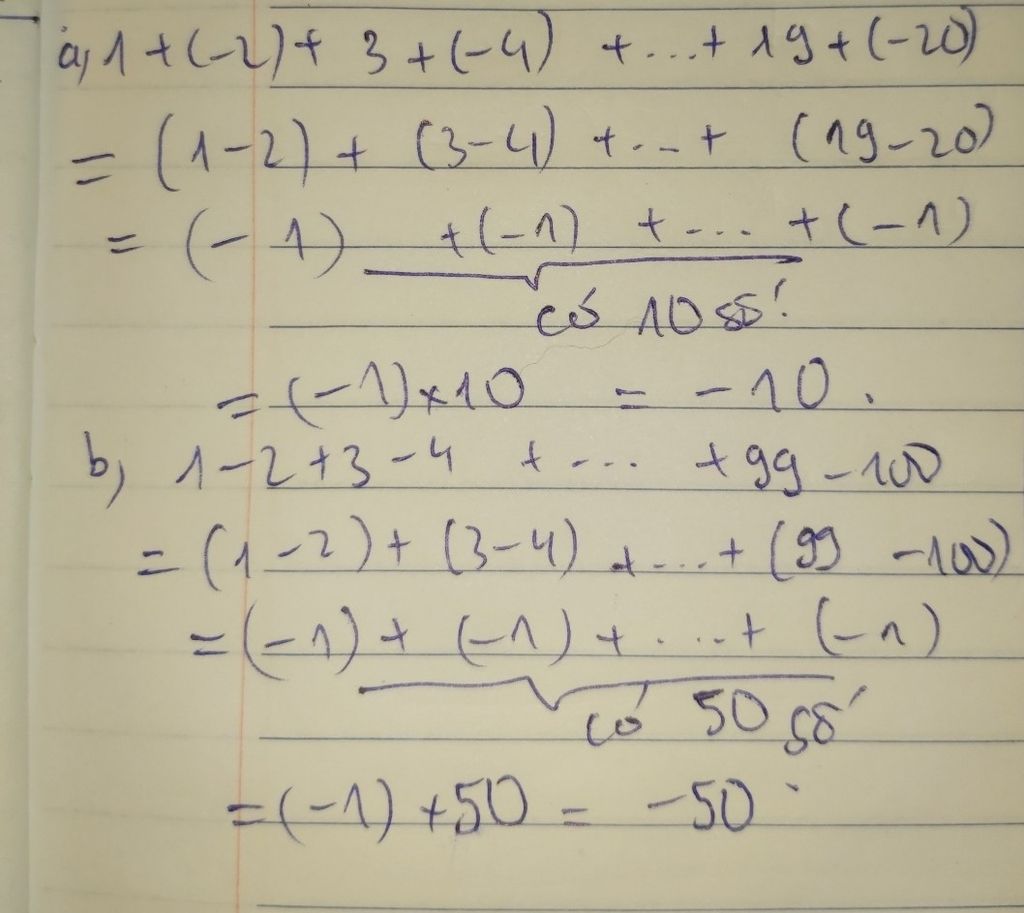 a, 1 + (-2) + 3 + (-4) + ... + 19 + (-20)
= (1-2) + (3-4) + ... + (19-20)
= (-1) + (-1) + ... + (-1)
có 10 số
= (-1) x 10 = -10.
b, 1 - 2 + 3 - 4 + ... + 99 - 100
= (1-2) + (3-4) + .... + (99 - 100)
= (-1) + (-1) + .... + (-1)
có 50 số
= (-1) + 50 = -50